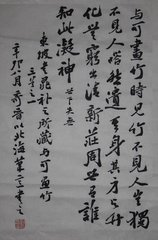 与可畫竹時見竹不見人豈獨
不見人嗒然遺其身其身与竹
化無窮出清新莊周世無有誰
知此凝神
東坡書晁補之所藏与可畫竹
三首之一
辛卯八月 北海 書之